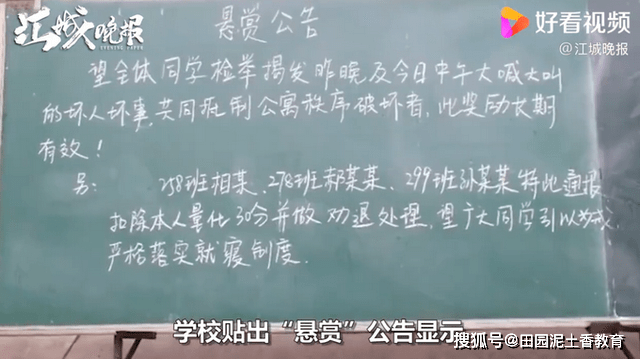 江城晚报
EVENING PAPER
好看视频
@江城晚报
悬赏公告
望全体同学检举揭发昨晚及今日中午大喊大叫
的坏人坏事,共同抵制公寓秩序破坏者,此奖励长期
有效!
另: 258班相某、278班郝某某、299班孙某某特此通报
扣除本人量化30分并做劝退处理,望广大同学引以为戒,
严格落实就寝制度.
学校贴出“悬赏”公告显示
搜狐号@田园泥土香教育